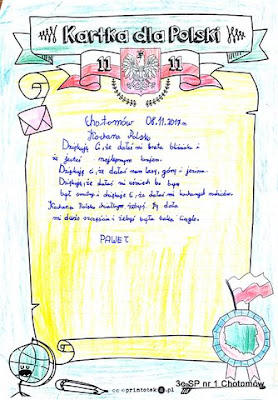 Kartka dla Polski
11 11
Chotomów 08.11.2017r.
Kochana Polsko
Dziękuję Ci, że dałaś mi brata bliźniaka i
że jesteś najlepszym krajem.
Dziękuję Ci, że dałaś nam lasy, góry i jeziora.
Dziękuję, że dałaś mi uśmiech bo bym
był smutny i dziękuję Ci, że dałaś mi kochanych rodziców.
Kochana Polsko chciałbym żebyś Ty dała
mi dużo szczęścia i żebyś była taka ciągle.
PAWEŁ
printotek.pl
3c SP nr 1 Chotomów